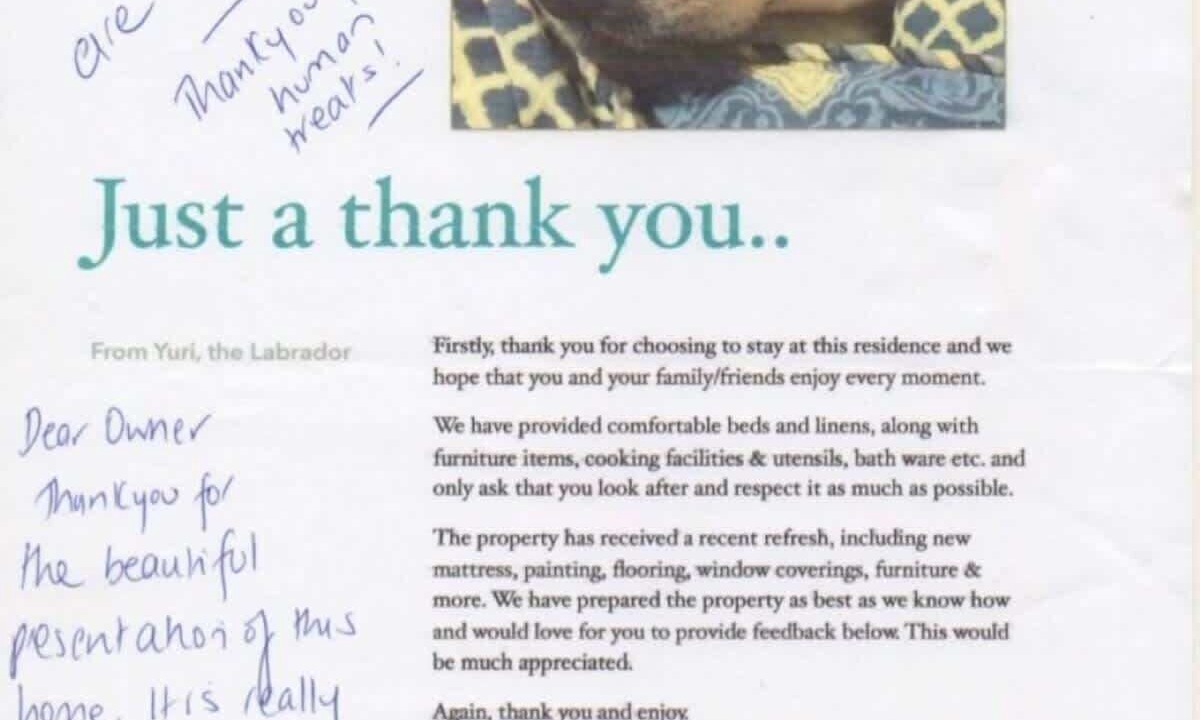 are
Thankyou
human
treats!
Just a thank you..
From Yuri, the Labrador
Dear Owner
Thankyou for
the beautiful
presentation of this
home. It is really
Firstly, thank you for choosing to stay at this residence and we
hope that you and your family/friends enjoy every moment.
We have provided comfortable beds and linens, along with
furniture items, cooking facilities & utensils, bath ware etc. and
only ask that you look after and respect it as much as possible.
The property has received a recent refresh, including new
mattress, painting, flooring, window coverings, furniture &
more. We have prepared the property as best as we know how
and would love for you to provide feedback below. This would
be much appreciated.
Again, thank you and enjoy.